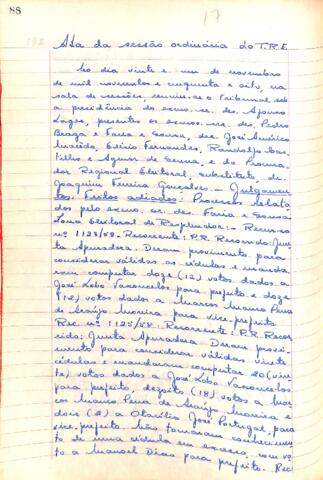 88
17
Ata da sessão ordinária do T.R.E.
Ao dia vinte e um de novembro
de mil novecentos e cinquenta e oito, na
sala de sessões reuniu-se o Tribunal, sob
a presidência do exmo. sr. des. Afonso
Lages, presentes os exmos. srs. des. Pedro
Braga e Faria e Sousa, drs. José Américo
Macêdo, Edésio Fernandes,
Filho e Agenor de Senna, e do Procura-
dor Regional Eleitoral, substituto, dr.
Joaquim Ferreira Gonçalves. - Julgamen-
tos. Feitos adiados: Processos relata-
dos pelo exmo. sr. des. Faria e Sousa:
Zona Eleitoral de Resplendor: - Recurso
nº 1123/58. Recorrente: P.R. Recorrido: Jun-
ta Apuradora. Deram provimento para
considerar válidas as cédulas e manda-
ram computar doze (12) votos dados a
José Lobo Vasconcelos para prefeito e doze
(12) votos dados a Marcos Mauro Pena
de Araújo Moreira para vice-prefeito
Rec. nº 1125/58. Recorrente: P.R. Recor-
rido: Junta Apuradora Deram provi-
mento para considerar válidas vinte
cédulas e mandaram computar 20 (vin-
te) votos dados a José Lobo Vasconcelos
para prefeito, dezoito (18) votos a Mar-
cos Mauro Pena de Araújo Moreira e
dois (2) a Otacílio José Portugal, para
vice-prefeito. Não tomaram conhecimen-
to de uma cédula em excesso, com vo-
to a Manoel Dias para prefeito. Rec